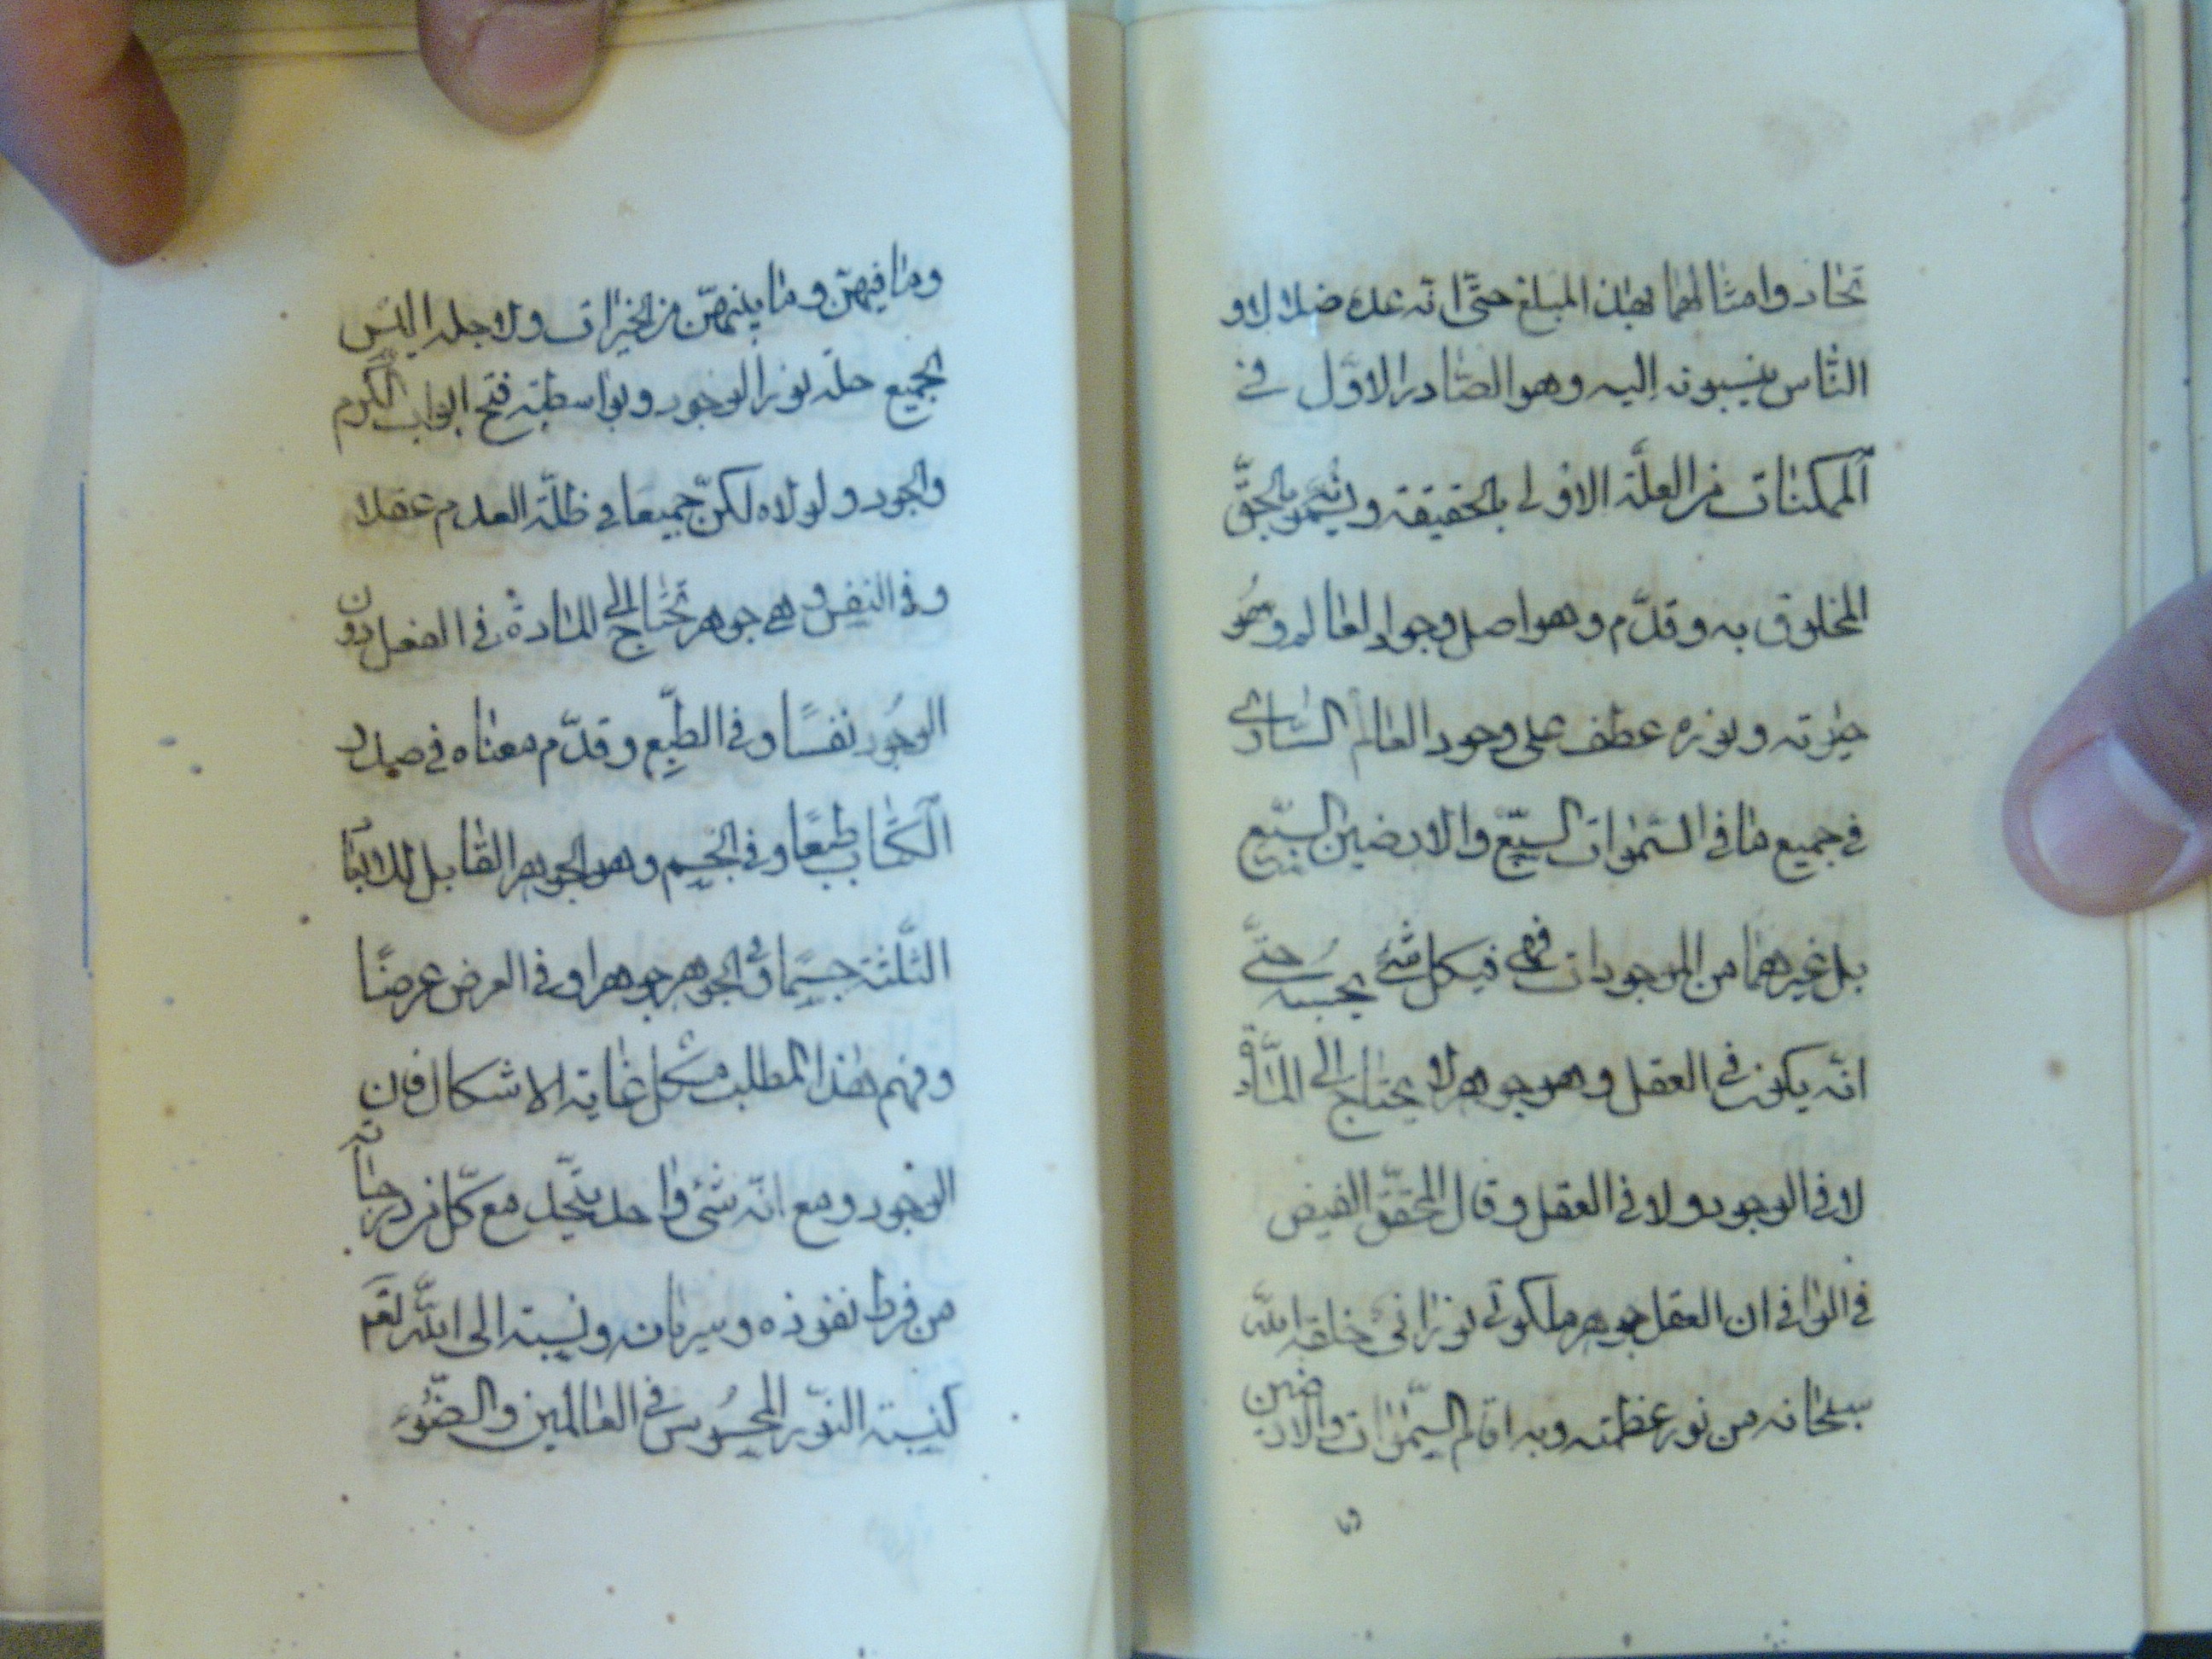 تحاد وامثالهما بهذا المبلغ حتى انه عده ضلالا و
الناس ينسبونه اليه وهو الصادر الاول في
الممكنات من العلة الاولى بالحقيقة ويسمى بالحق
المخلوق به وقدم وهو اصل وجود العالم وهو
حيوته ونوره عطف على وجود العالم الساري
في جميع ما في السموات السبع والارضين السبع
بل غيرهما من الموجودات فهى فيكل شئ بحسبه حتى
انه يكون في العقل وهو جوهر لا يحتاج الى المادة
لا في الوجود ولا في العقل وقال المحقق الفيض
في الوافي ان العقل جوهر ملكوتي نوراني خلقه الله
سبحانه من نور عظمته وبه اقام السموات والارضين
وما
وما فيهن وما بينهن من الخيرات ولاجله البس
الجميع حلة نور الوجود وبواسطته فتح ابواب الكرم
والجود ولولاه لكن جميعا في ظلمة العدم عقلا
وفي النفس وهي جوهر تحتاج الى المادة في الفعل دون
الوجود نفسا وفي الطبع وقدم معناه في صدر
الكتاب طبعا وفي الجسم وهو الجوهر القابل للابعاد
الثلثة جسما وفي الجوهر جوهرا وفي العرض عرضا
وفهم هذا المطلب مشكل غاية الاشكال فان
الوجود ومع انه شئ واحد يتحد مع كل من درجاته
من فرط نفوذه وسريانه ونسبته الى الله تعم
كنسبة النور المحسوس في العالمين والضوء